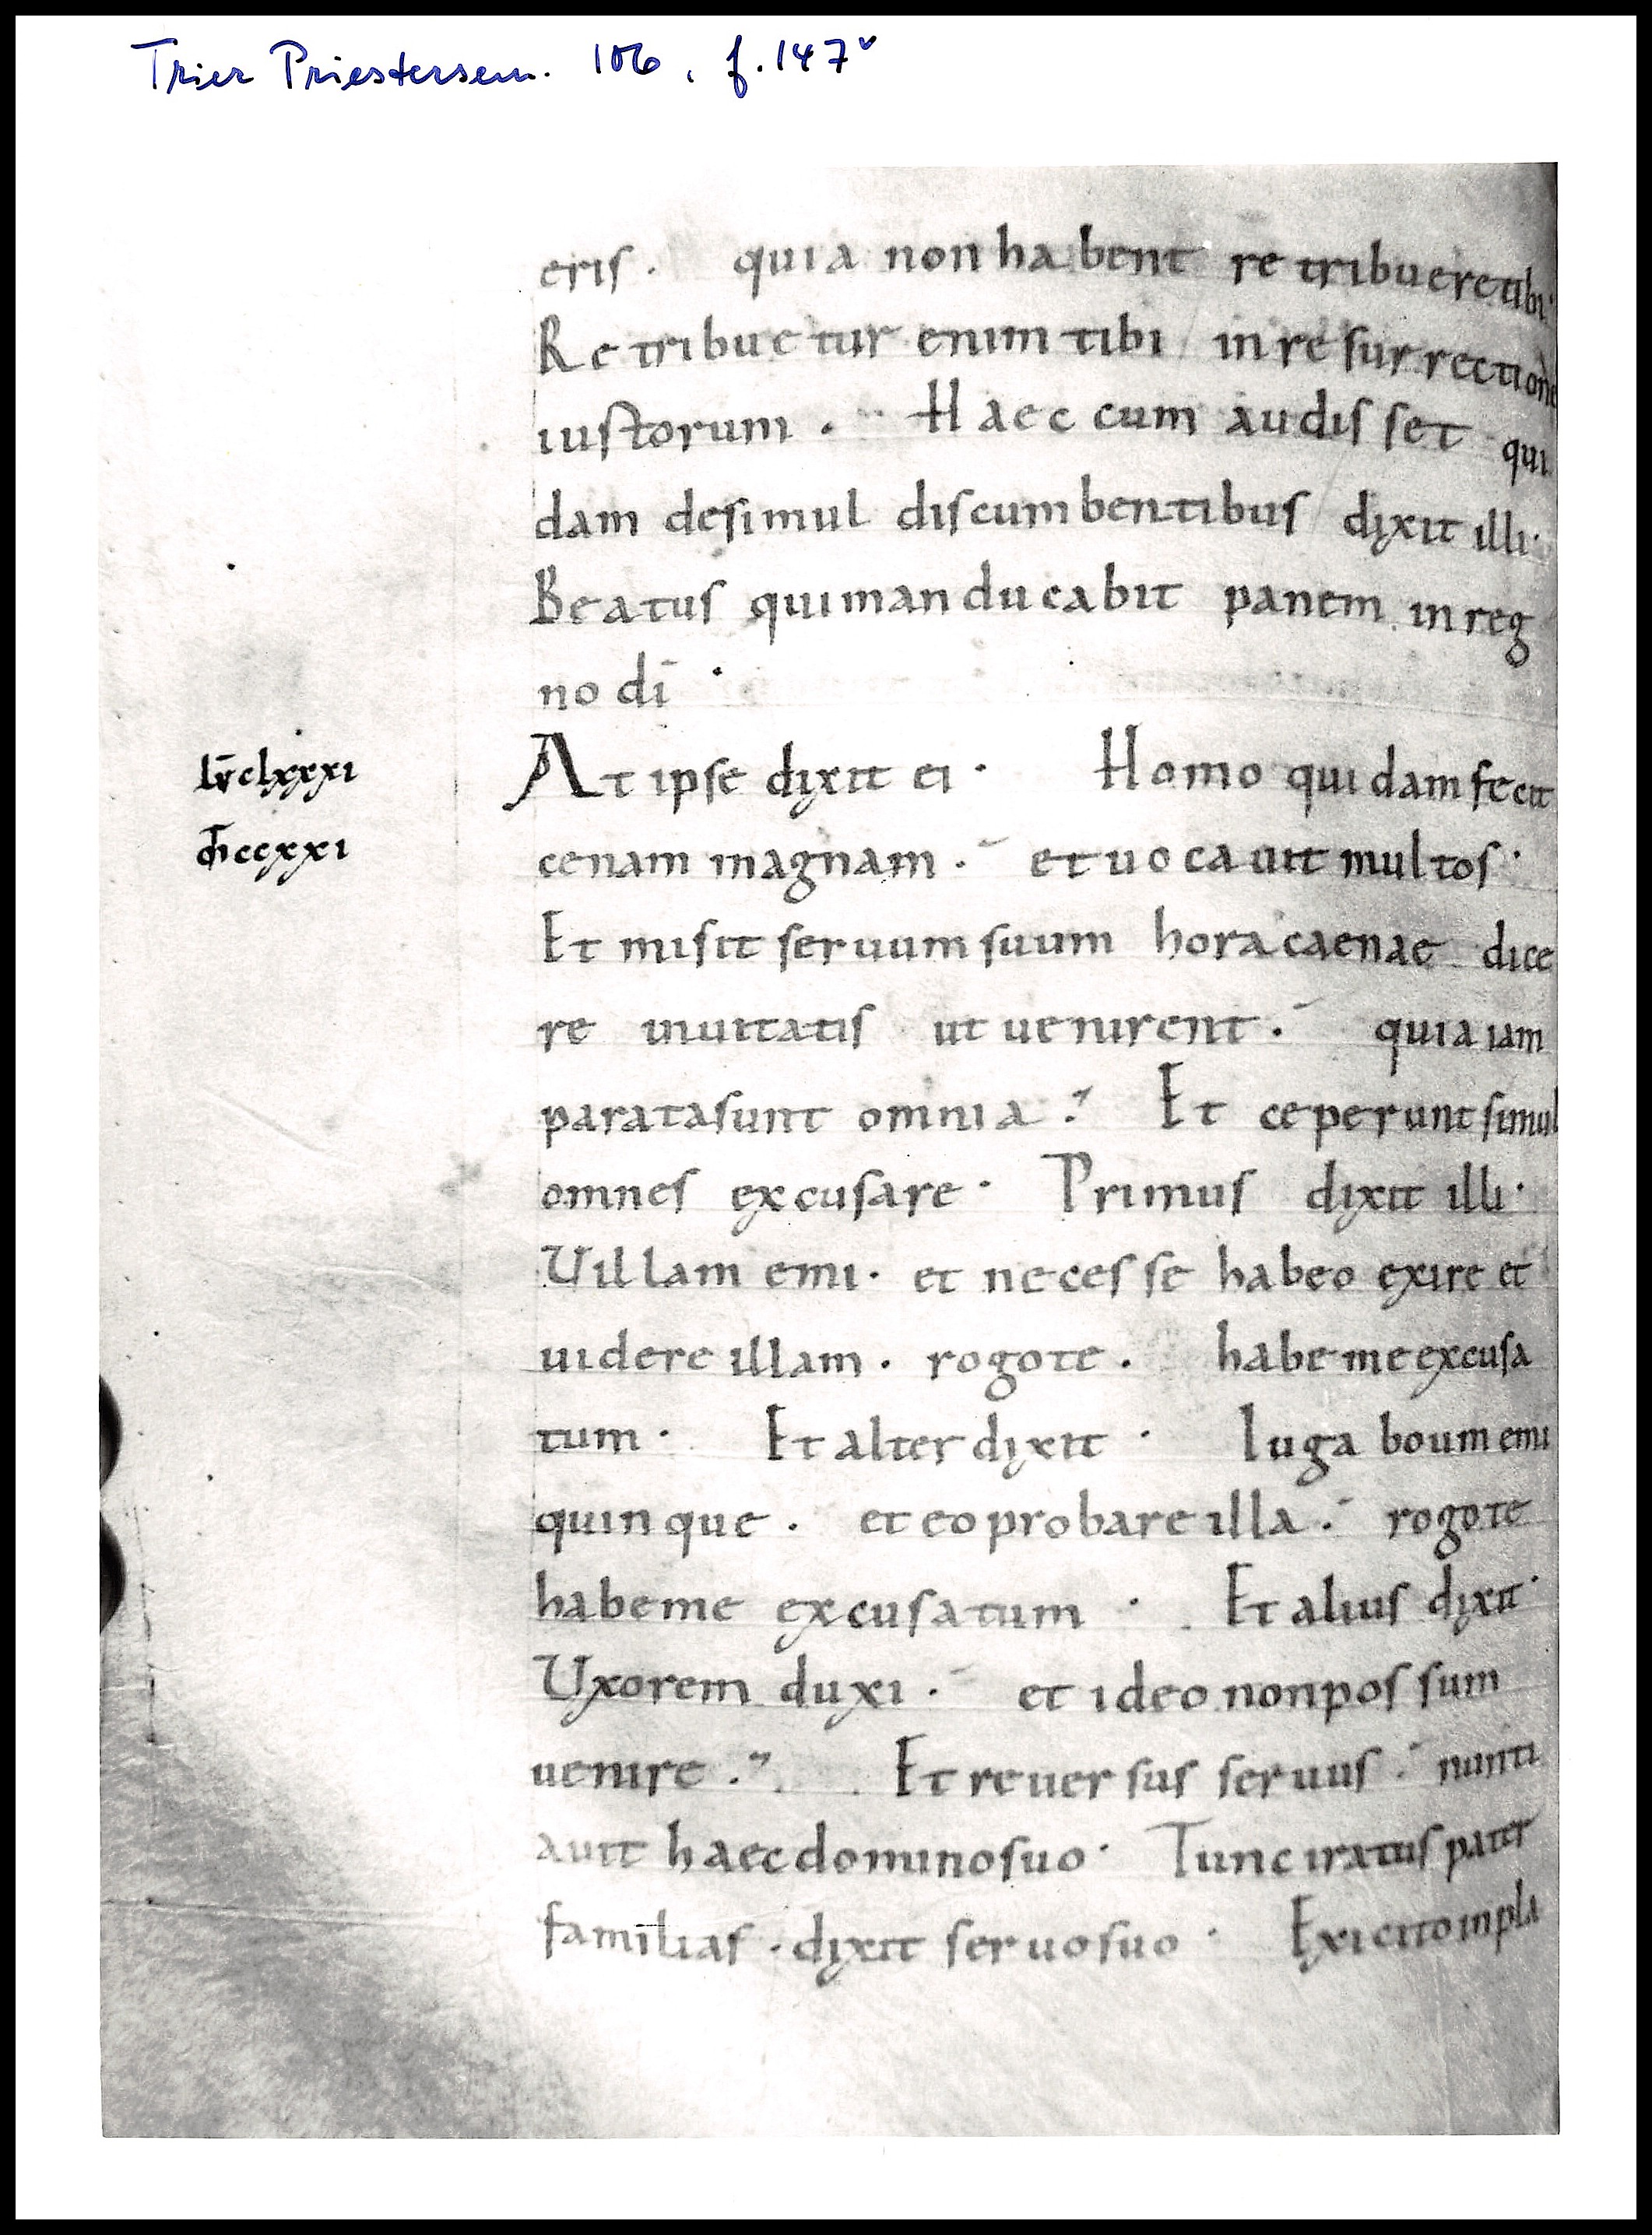 Trier Priestersem. 106, f. 147v
eris. quia non habent retribuere tibi.
Retribuetur enim tibi in resurrectione
iustorum. Haec cum audisset qui
dam de simul discumbentibus dixit illi.
Beatus qui manducabit panem in reg
no dī.
At ipse dixit ei. Homo quidam fecit
lv̄clxxxi
cenam magnam. et uocauit multos.
m̄ccxxi
Et misit seruum suum hora caenae dice
re inuitatis ut uenirent. quia iam
parata sunt omnia. Et ceperunt simul
omnes excusare. Primus dixit illi.
Uillam emi. et necesse habeo exire et
uidere illam. rogo te. habe me excusa
tum. Et alter dixit. Iuga boum emi
quinque. et eo probare illa. rogo te
habe me excusatum. Et alius dixit.
Uxorem duxi. et ideo non possum
uenire. Et reuersus seruus. nunti
auit haec domino suo. Tunc iratus pater
familias. dixit seruo suo. Exi cito in pla